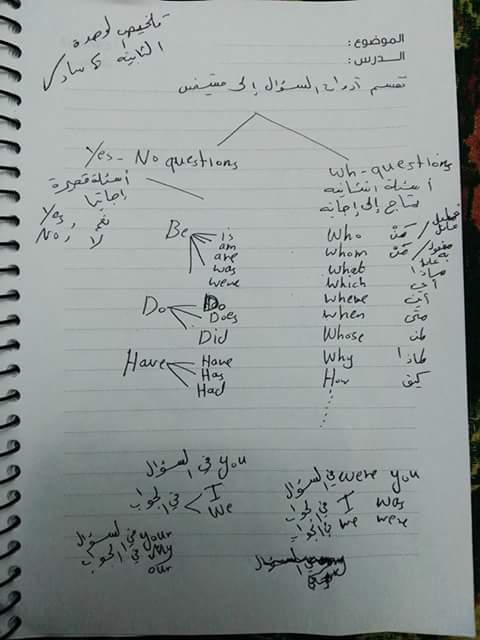 تلخيص لوحدة
الثانية 6 ساد
الموضوع:
الدرس:
تقسم أدوات السؤال إلى
Yes-No questions
أسئلة قصيرة
إجابتها
Yes, نعم
No, لا
Be is
am
are
was
were
Do Do
Does
Did
Have Have
Has
Had
wh-questions
أسئلة انشائية
تحتاج إلى إجابة
Who مَنْ فاعل عاقل
whom مَنْ مفعول به عاقل
what ماذا
which أي
where أين
when متى
Whose لمن
Why لماذا
How كيف
في السؤال you
في الجواب I
We
في السؤال your
في الجواب my
our
في السؤال were you
في الجواب I was
في الجواب we were